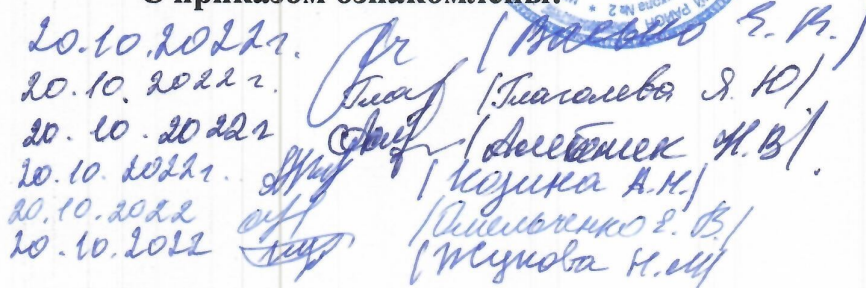 С приказом ознакомлены:
20.10.2022г. /Васько Е. В./
20.10.2022г. /Глаголева Я. Ю/
20.10.2022г Н.В/
20.10.2022г. /Козина А.Н./
20.10.2022 /Омельченко Е. В./
20.10.2022 /Жукова Н.М/
РАЙОН
№ 2